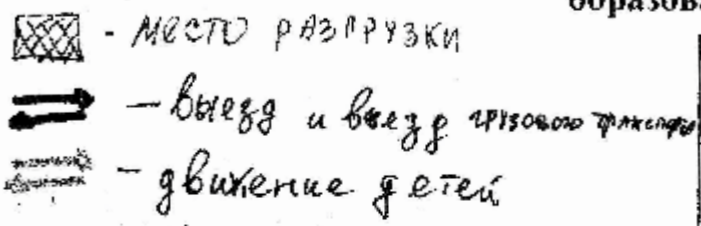 образова
- МЕСТО РАЗГРУЗКИ
- выезд и въезд грузового транспорта
- движение детей